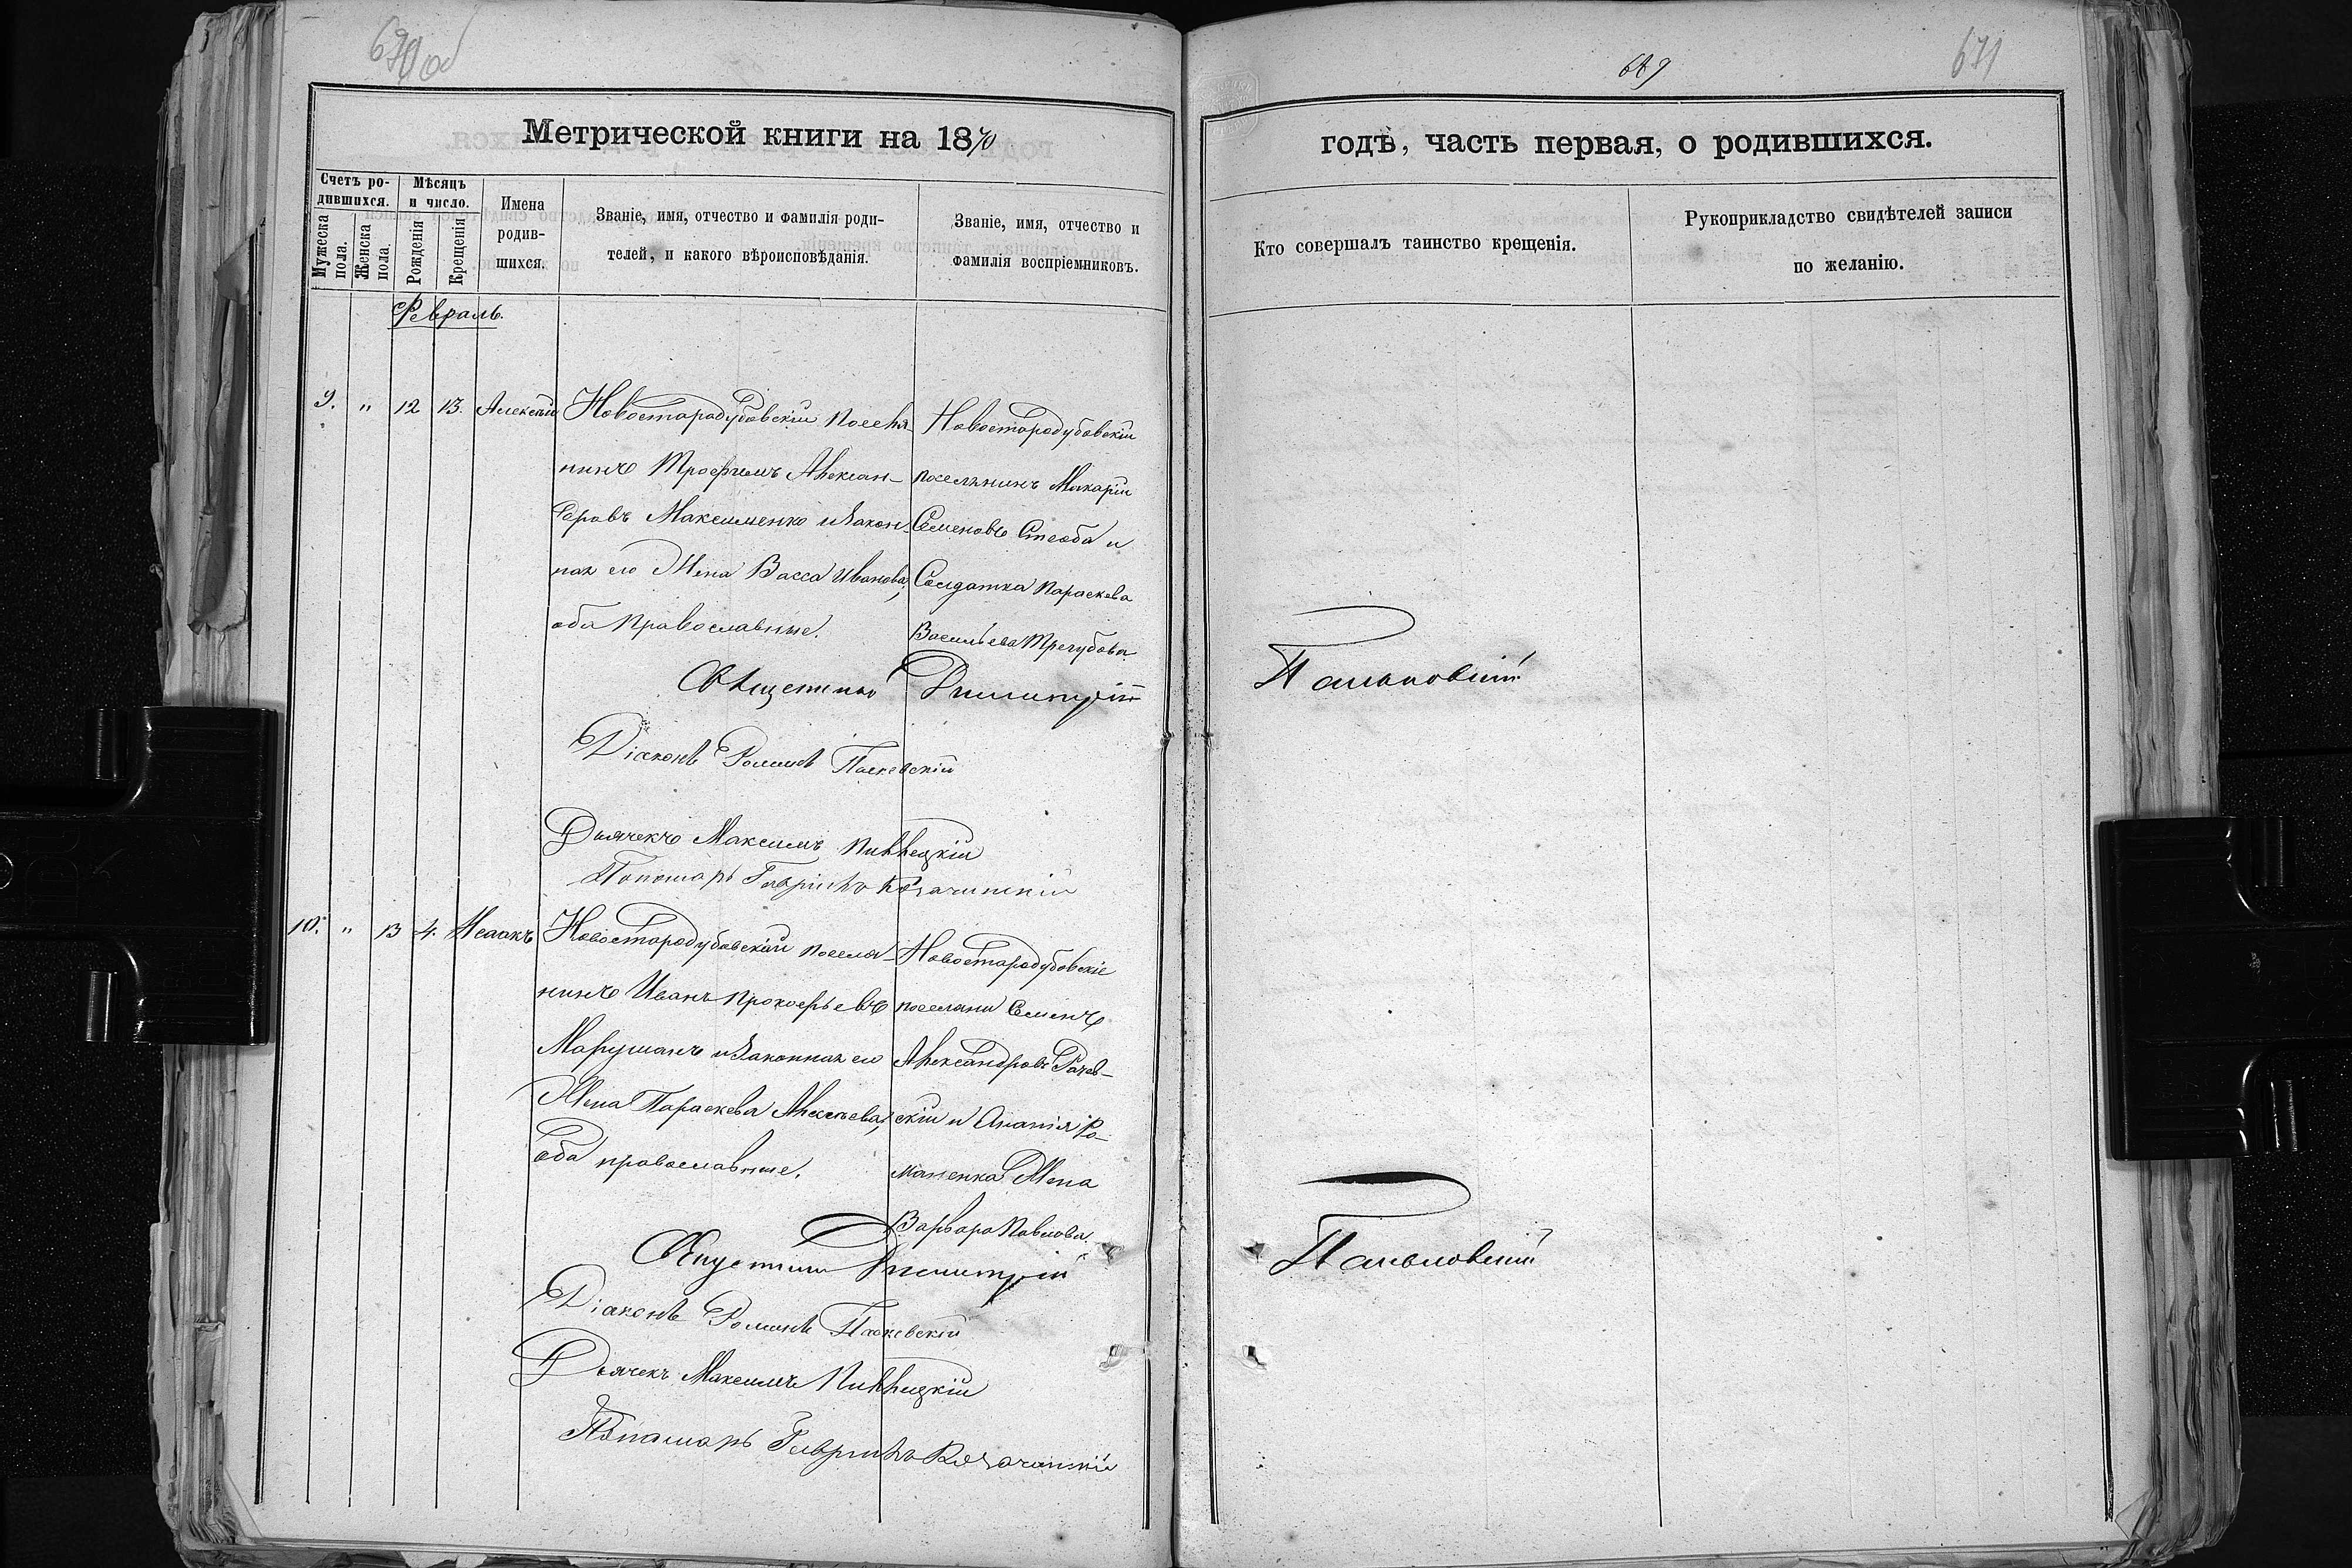 670 об
689
671
Метрической книги на 1870
годъ, часть первая, о родившихся.
Счетъ ро-
дившихся.
Мужеска
пола.
Женска
пола.
Мѣсяцъ
и число.
Рожденія
Крещенія
Имена
родив-
шихся.
Званіе, имя, отчество и фамилія роди-
телей, и какого вѣроисповѣданія.
Званіе, имя, отчество и
фамилія воспріемниковъ.
Кто совершалъ таинство крещенія.
Рукоприкладство свидѣтелей записи
по желанію.
Февраль.
9. " 12 13. Алексѣй
Новостародубовскій поселя-
нинъ Трофимъ Алексан-
дровъ Максименко и закон-
ная его жена Васса Иванова,
оба православные.
Новостародубовскій
поселянинъ Макарій
Семеновъ Стеоба и
Солдатка Параскева
Васильева Трегубова.
Священникъ Димитрій
Пальновскій
Діаконъ Романъ Паскевскій
Дьячекъ Максимъ Пивницкій
Пономарь Гавріилъ Козачинскій
10. " 13 4. Исаакъ
Новостародубовскій поселя-
нинъ Иванъ Прокофьевъ
Марушанъ и законная его
жена Параскева Алексѣева,
оба православные.
Новостародубовскіе
поселяни Семенъ
Александровъ Рачев-
скій и Ананія Ро-
маненка жена
Варвара Павлова.
Священникъ Димитрій
Пальновскій
Діаконъ Романъ Паскевскій
Дьячекъ Максимъ Пивницкій
Пономарь Гавріилъ Козачинскій